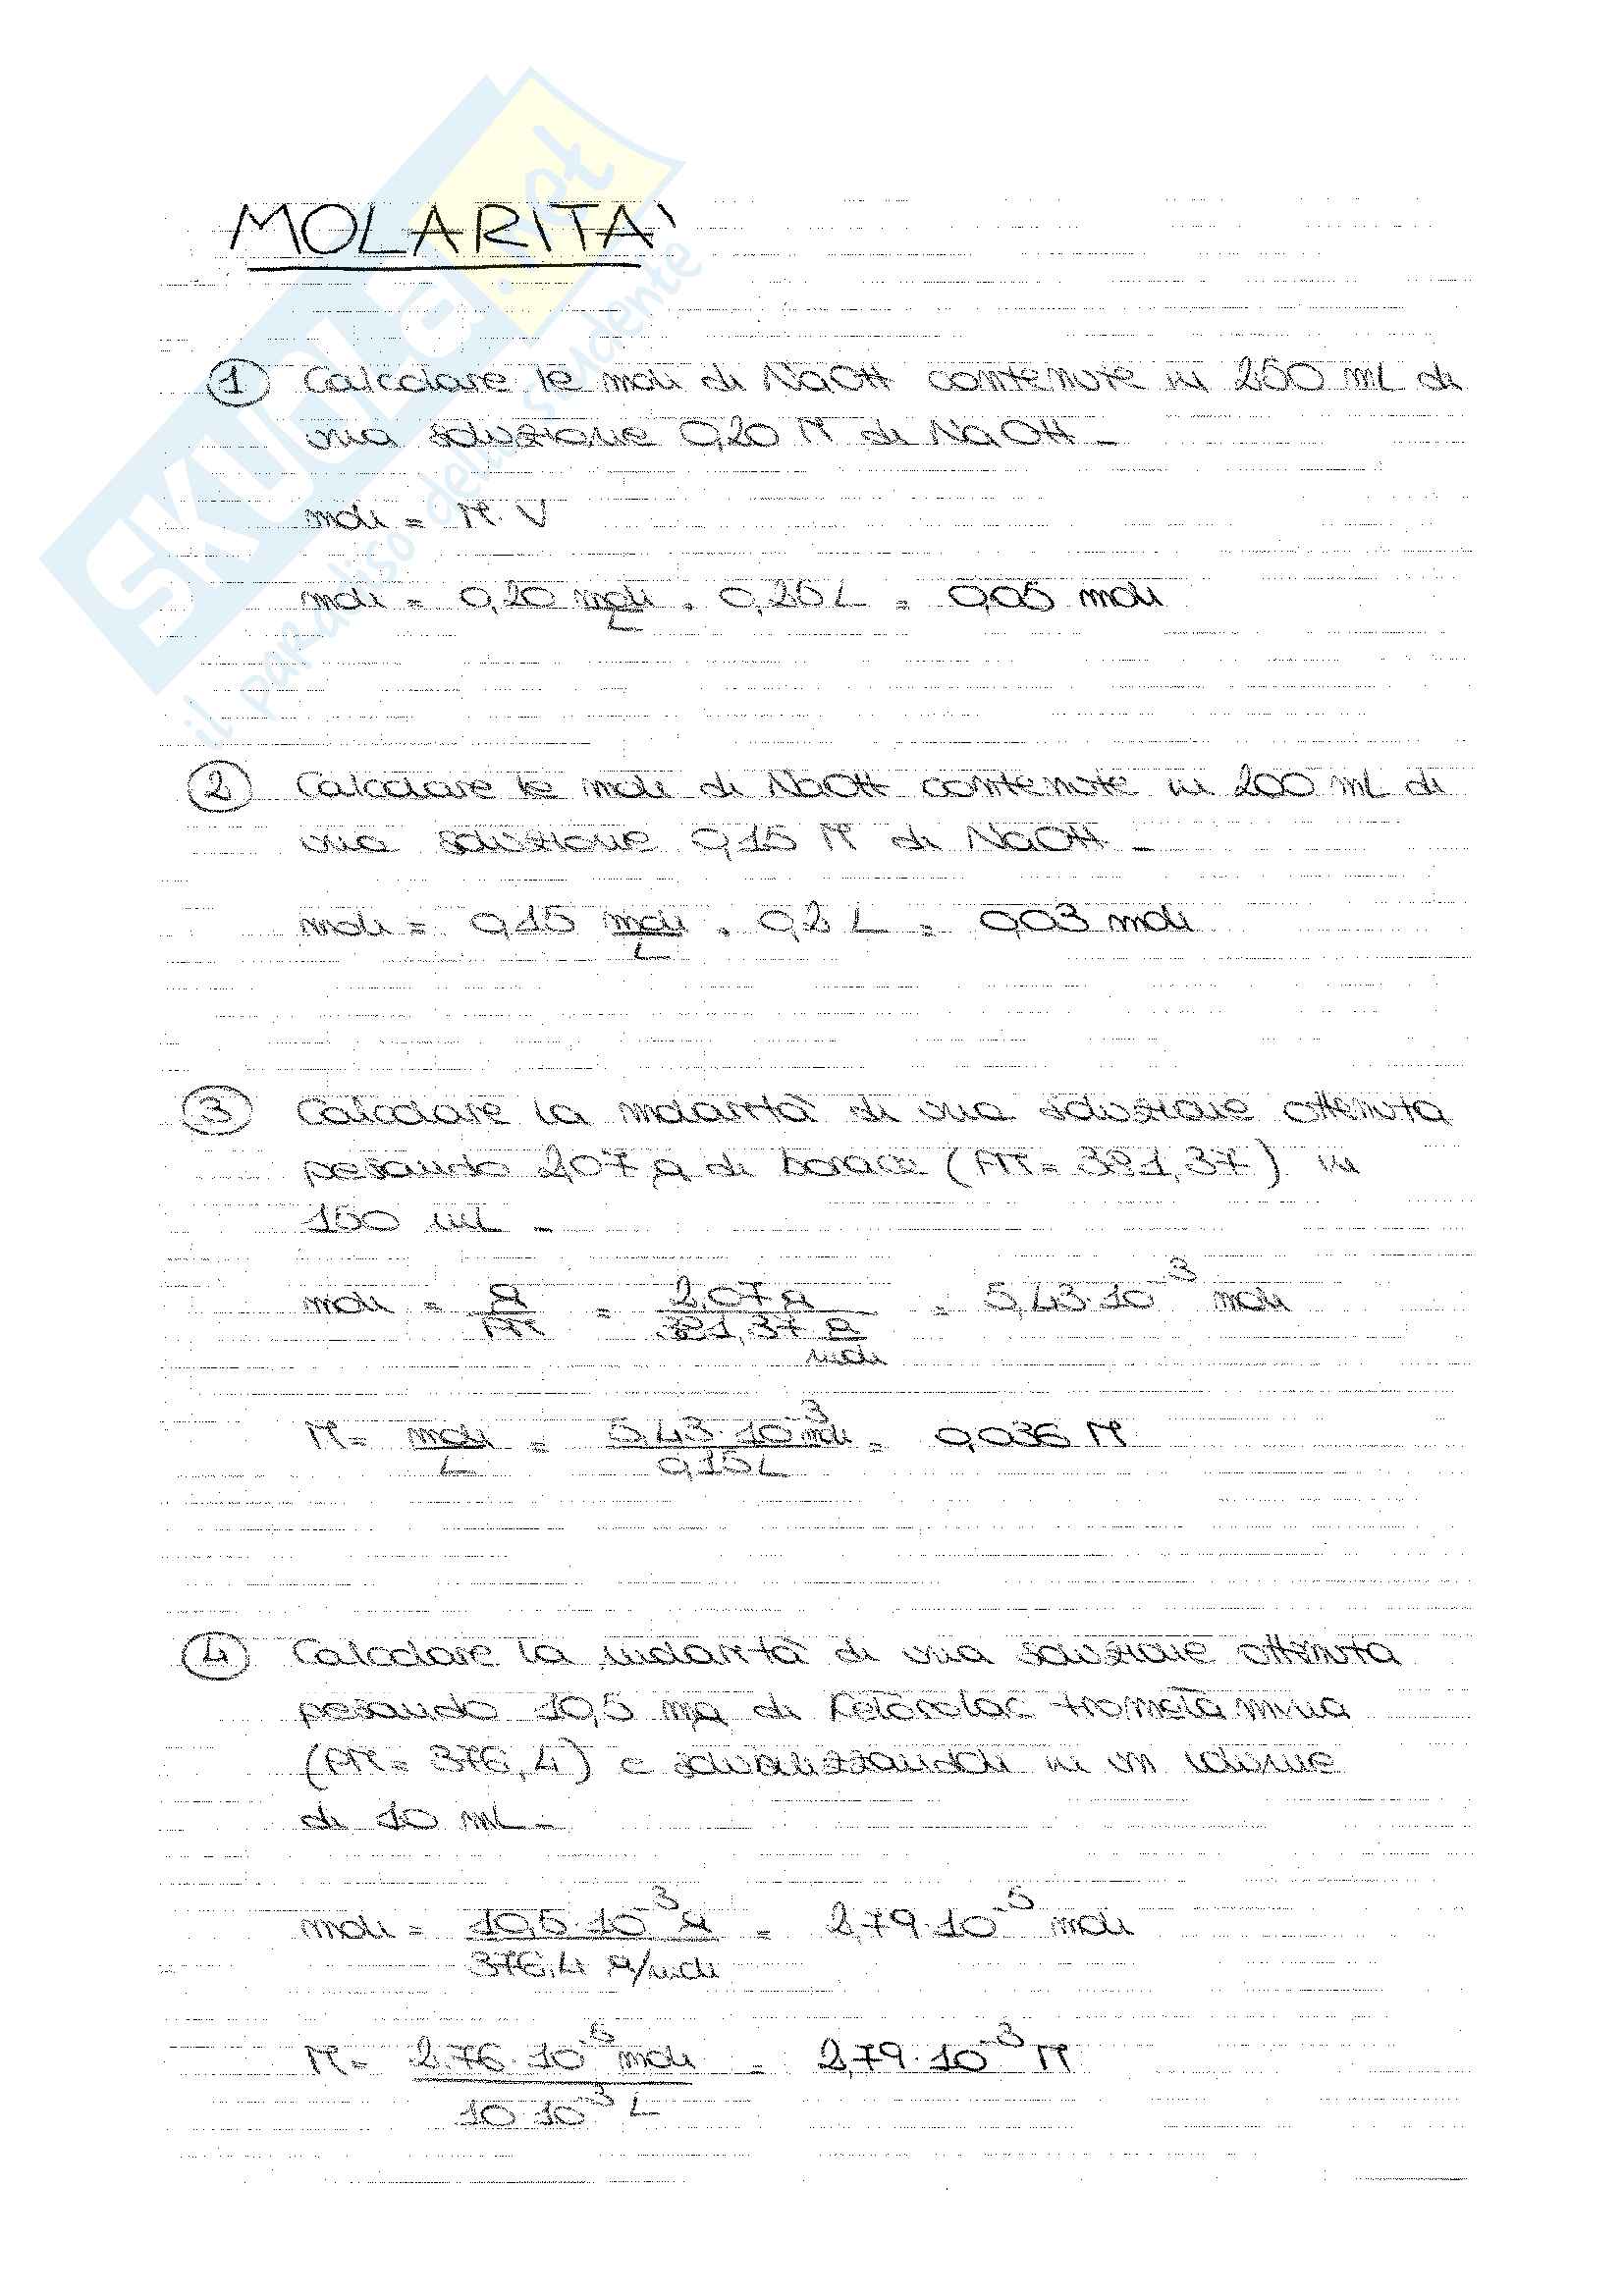 MOLARITA'
1 Calcolare le moli di NaOH contenute in 250 mL di
una soluzione 0,20 M di NaOH -
moli = M · V
moli = 0,20 moli/L · 0,25 L = 0,05 moli
2 Calcolare le moli di NaOH contenute in 200 mL di
una soluzione 0,15 M di NaOH -
moli = 0,15 moli/L · 0,2 L = 0,03 moli
3 Calcolare la molarità di una soluzione ottenuta
pesando 2,07 g di borace (PM = 381,37) in
150 mL -
moli = g/PM = 2,07 g / 381,37 g/moli = 5,43 · 10^-3 moli
M = moli/L = 5,43 · 10^-3 moli / 0,15 L = 0,036 M
4 Calcolare la molarità di una soluzione ottenuta
pesando 10,5 mg di Ketorolac trometamina
(PM = 376,4) e solubilizzandoli in un volume
di 10 mL -
moli = 10,5 · 10^-3 g / 376,4 g/moli = 2,79 · 10^-5 moli
M = 2,76 · 10^-5 moli / 10 · 10^-3 L = 2,79 · 10^-3 M
SKUOLA.net
il paradiso dello studente